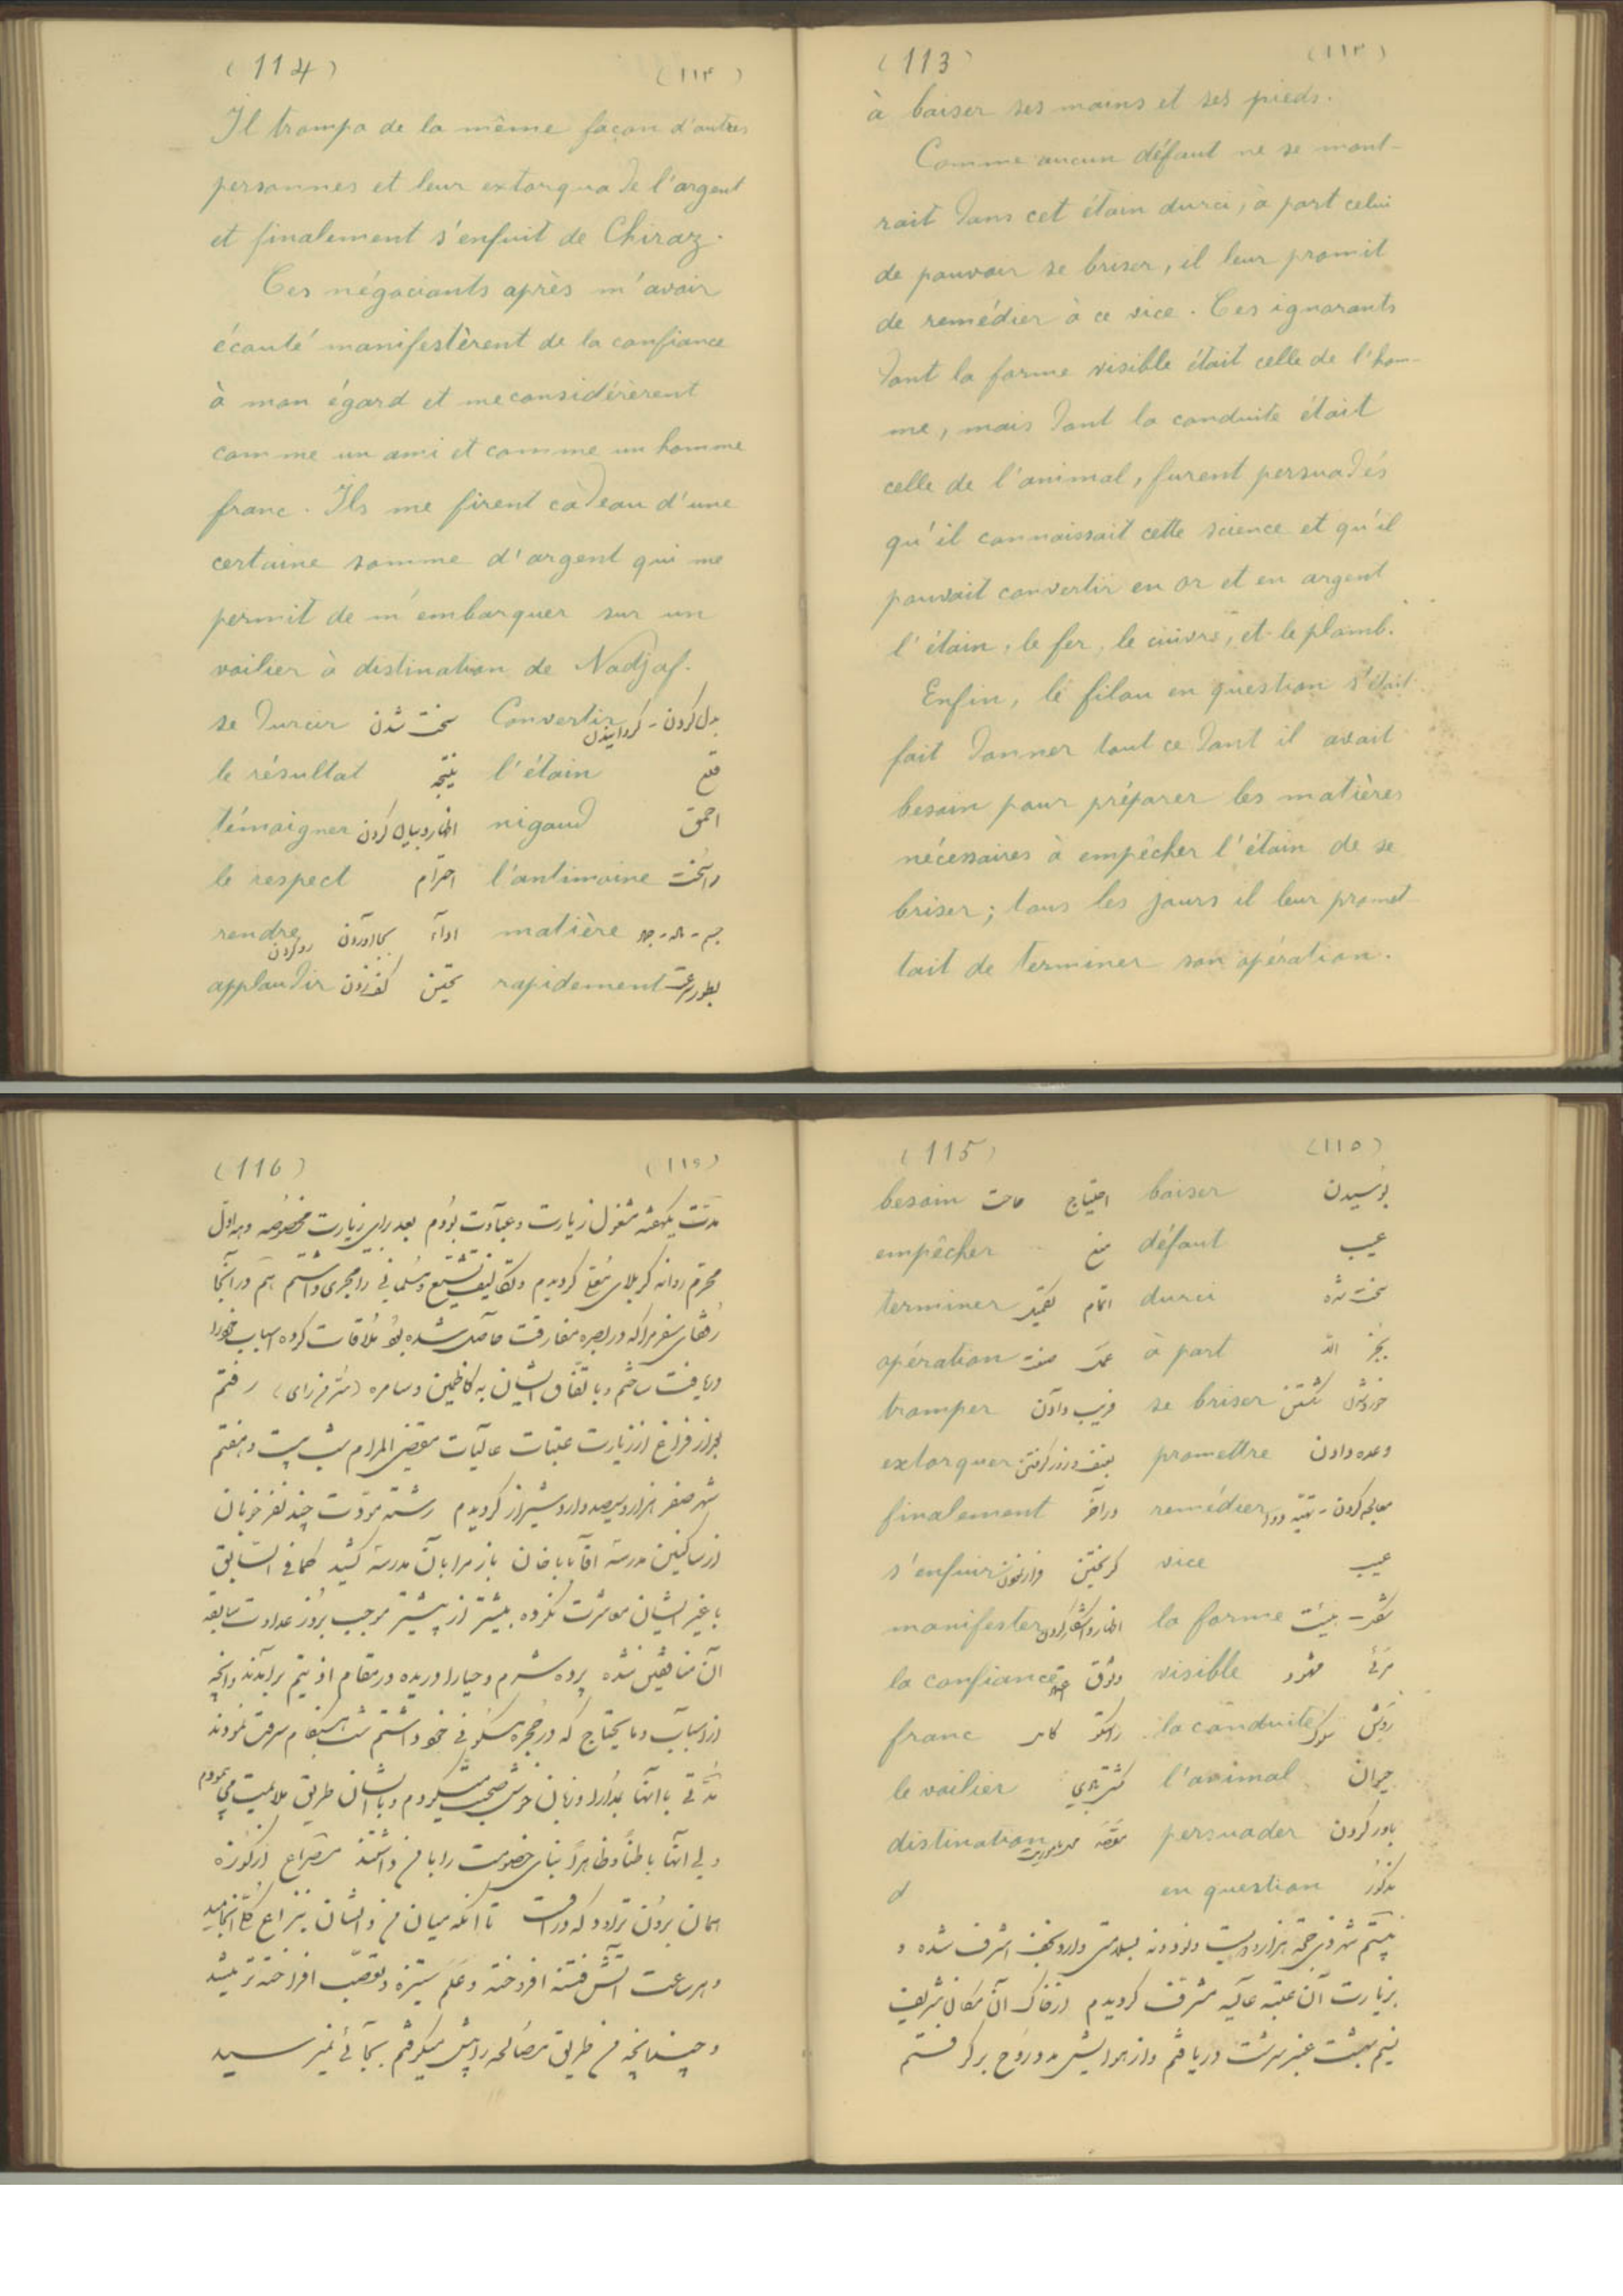 (113) (۱۱۳)
à baiser ses mains et ses pieds.
Comme aucun défaut ne se mont-
rait dans cet étain durci, à part celui
de pouvoir se briser, il leur promit
de remédier à ce vice. Ces ignorants
dont la forme visible était celle de l'hom-
me, mais dont la conduite était
celle de l'animal, furent persuadés
qu'il connaissait cette science et qu'il
pouvait convertir en or et en argent
l'étain, le fer, le cuivre, et le plomb.
Enfin, le filou en question s'était
fait donner tout ce dont il avait
besoin pour préparer les matières
nécessaires à empêcher l'étain de se
briser; tous les jours il leur promet
tait de terminer son opération.
(114) (۱۱۴)
Il trompa de la même façon d'autres
personnes et leur extorqua de l'argent
et finalement s'enfuit de Chiraz.
Ces négociants après m'avoir
écouté manifestèrent de la confiance
à mon égard et me considérèrent
comme un ami et comme un homme
franc. Ils me firent cadeau d'une
certaine somme d'argent qui me
permit de m'embarquer sur un
voilier à distination de Nadjaf.
se durcir سخت شدن Convertir بدل کردن - گردانیدن
le résultat نتیجه l'étain قلع
témoigner اظهار و بیان کردن nigaud احمق
le respect احترام l'antimoine
rendre ادآء بجاآوردن رد کردن matière جسم -
applaudir کف زدن تحسین rapidement بطور سرعت
(115) (۱۱۵)
besoin حاجت احتیاج baiser بوسیدن
empêcher منع défaut عیب
terminer اتمام durci سخت شده
opération عمل à part بجز
tromper فریب دادن se briser شکستن
extorquer بعنف و زور گرفتن promettre وعده دادن
finalement در آخر remédier معالجه کردن -
s'enfuir فرار نمودن گریختن vice عیب
manifester اظهار و آشکار کردن la forme شکل - هیئت
la confiance وثوق visible مرئی مشهود
franc راستگو la conduite روش سلوک
le voilier کشتی l'animal حیوان
distination مقصد persuader باور کردن
d en question مذکور
بیستم شهر ذی حجه هزار و دویست و نود و نه بسلامتی وارد نجف اشرف شده و
بزیارت آن عتبه عالیه مشرف گردیدم از خاک آن مکان شریف
نسیم بهشت عنبر سرشت دریافتم و از هوایش مدد روح برگرفتم
(116) (۱۱۶)
مدت یکهفته مشغول زیارت و عبادت بودم بعد برای زیارت مخصوصه دهه اول
محرم روانه کربلای معلی گردیدم و تکالیف تشیع و مسلمانی را مجری داشتم هم در آنجا
رفقای سفر مرا که در بصره مفارقت حاصل شده بود ملاقات کرده اسباب خود را
دریافت ساختم و باتفاق ایشان به کاظمین و سامره (سرمن رای) رفتم
بعد از فراغ از زیارت عتبات عالیات مقضی المرام شب بیست و هفتم
شهر صفر هزار و سیصد وارد شیراز گردیدم رشته مودت چند نفر خوبان
از ساکنین مدرسه آقا بابا خان باز مرا بآن مدرسه کشید کما فی السابق
با غیر ایشان معاشرت نکرده بیشتر از پیشتر موجب بروز عداوت سابقه
آن منافقین شده پرده شرم و حیا را دریده در مقام اذیتم برآمدند و آنچه
از اسباب و ما یحتاج که در حجره مسکونی خود داشتم شب هنگام سرقت نمودند
مدتی با آنها بمدارا و زبان خوش صحبت میکردم و با ایشان طریق ملایمت می نمودم
ولی آنها باطناً و ظاهراً بنای خصومت را با من داشتند مصراع از کوزه
همان برون تراود که در اوست تا آنکه میان من و ایشان بنزاع انجامید
و هر ساعت آتش فتنه افروخته و علم ستیزه و تعصب افراخته تر میشد
و چندانچه من طریق مصالحه را پیش میگرفتم بجائی نمیرسید